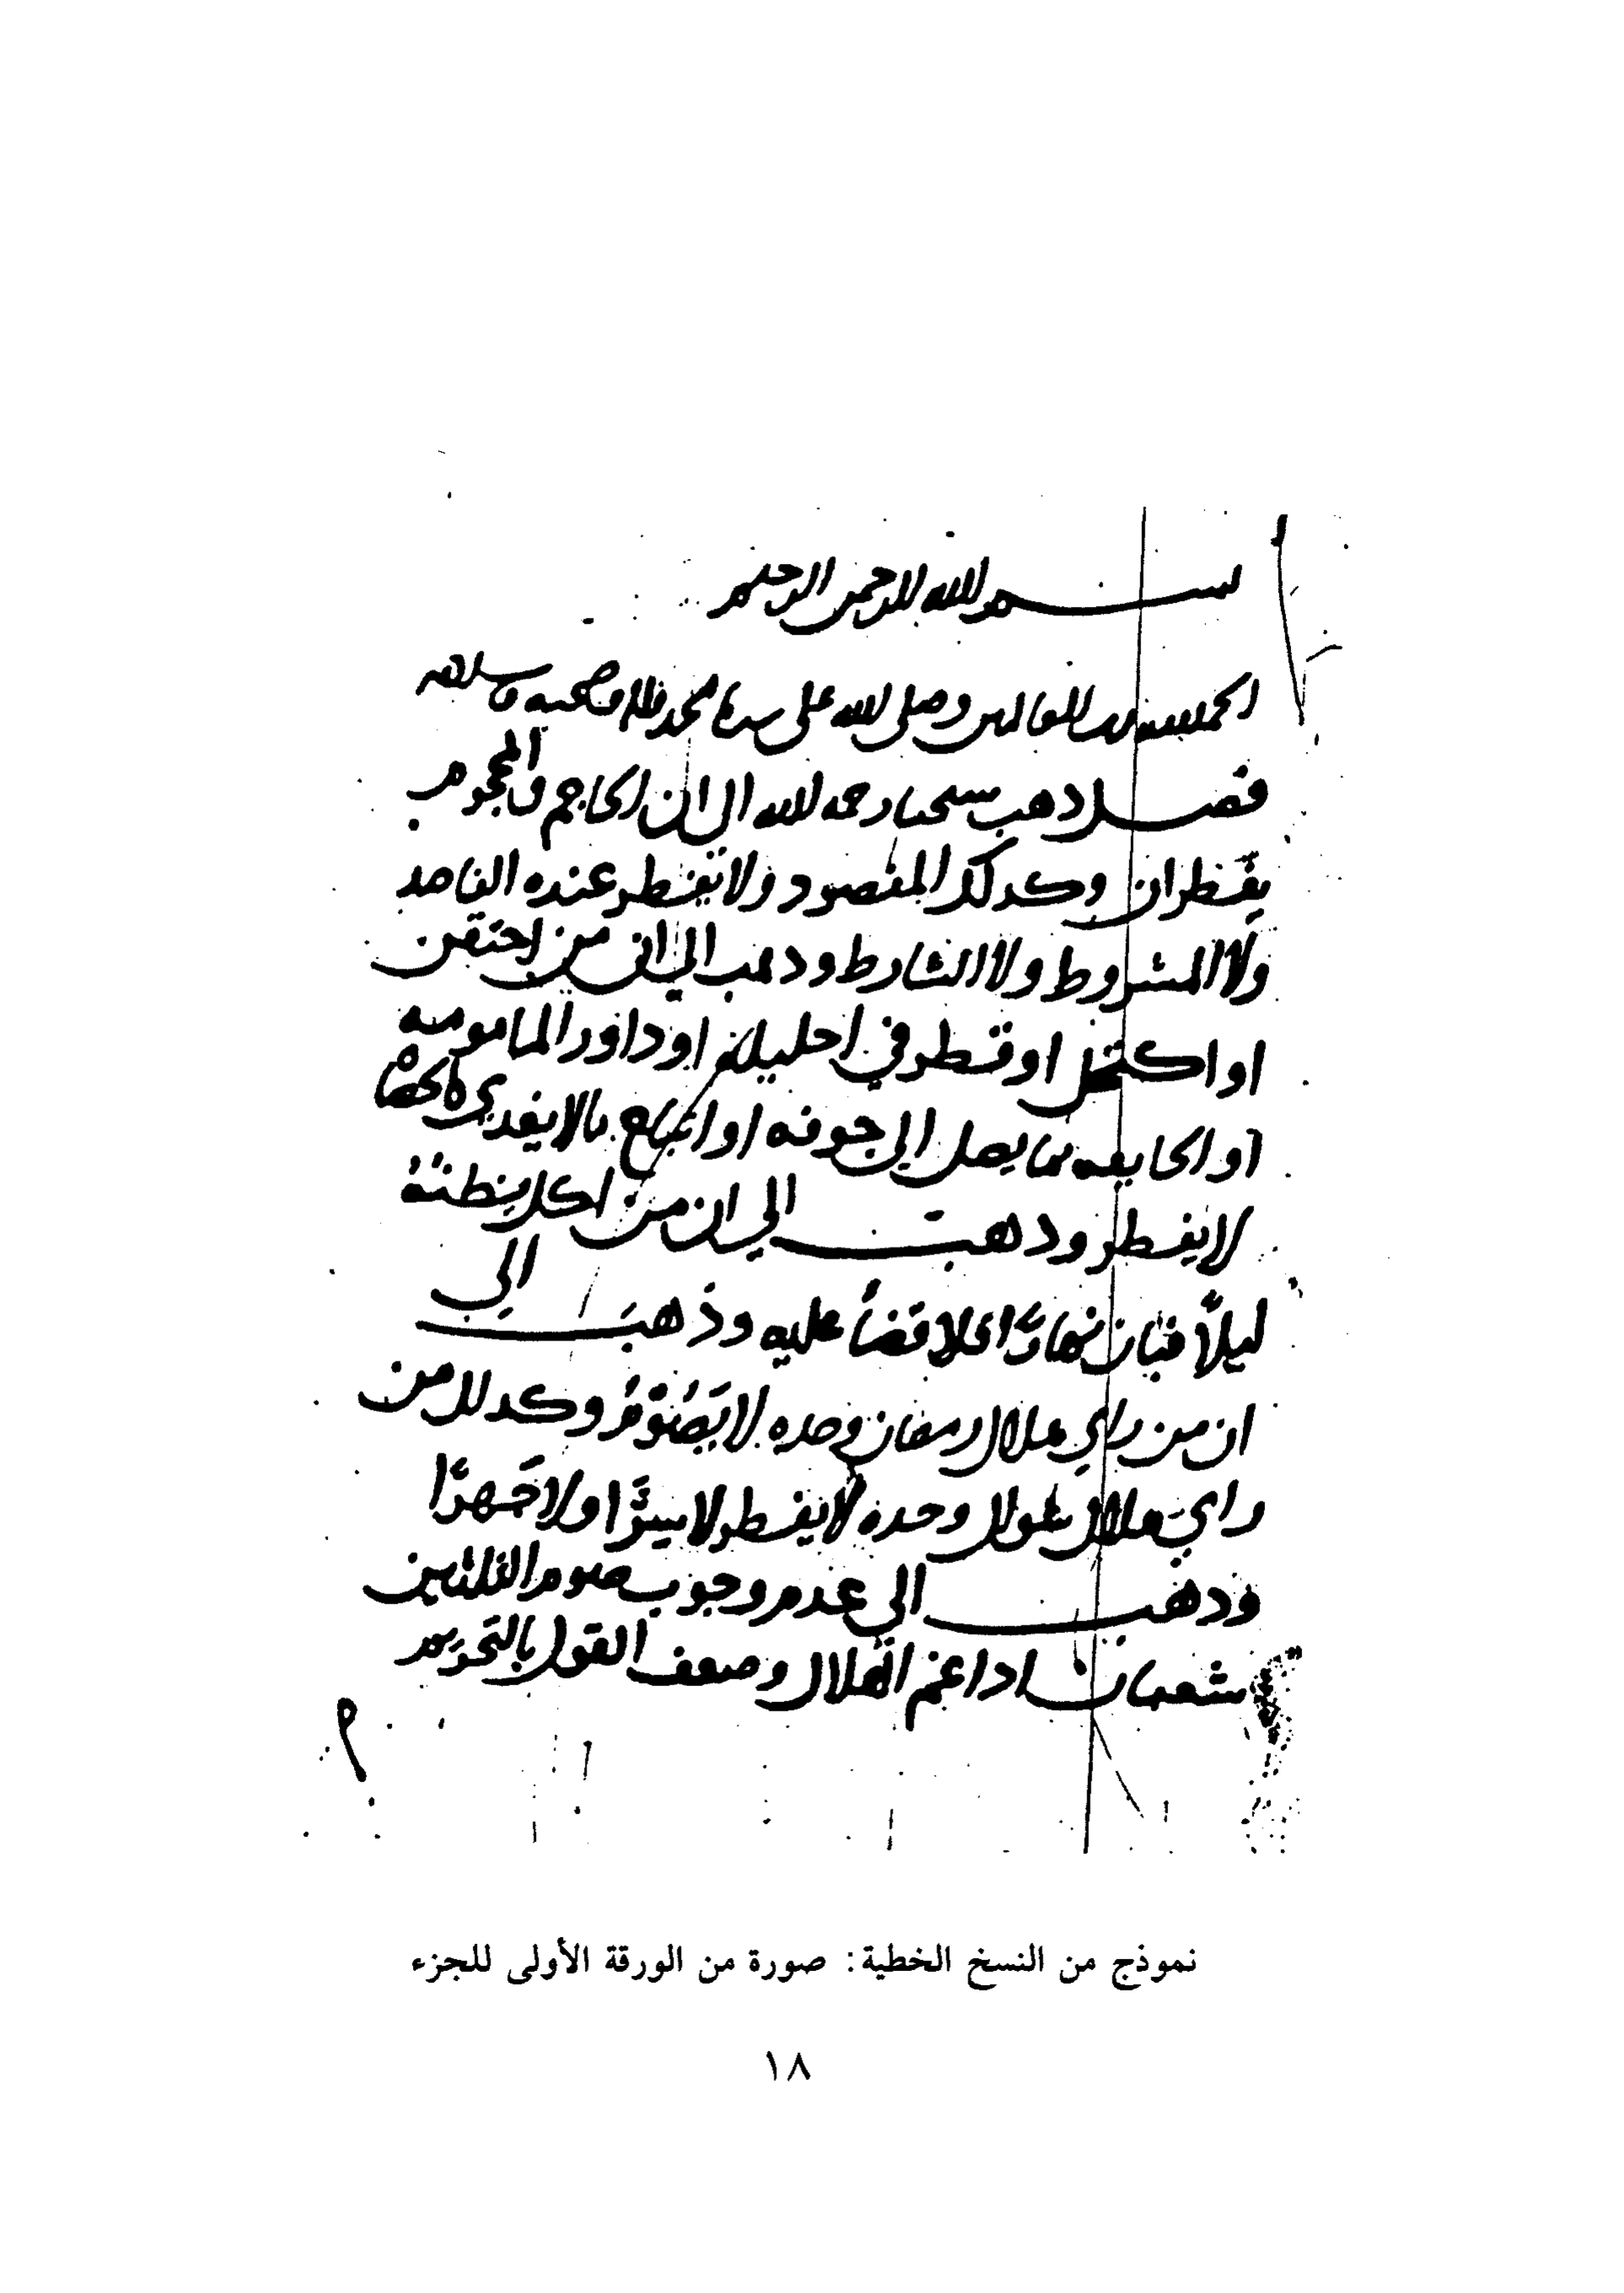 بسم الله الرحمن الرحيم
الحمد لله رب العالمين وصلى الله على سيدنا محمد واله وصحبه وسلم
فصل ذهب شيخنا رحمه الله الى ان الحاجم والمحجوم
يفطران وكذلك المفصود ولا يفطر عنده الفاصد
ولا المشروط ولا الشارط وذهب الي ان من احتقن
او اكتحل او قطر في احليله او داوا المامومه
او الجايفه بما يصل الي جوفه او ابتلع مالا يغدي كالحصاة
لا يفطر وذهب الي ان من اكل يظنه
ليلا فبان نهارا فلا قضا عليه وذهب الي
ان من راي هلال رمضان وحده لا يصوم وكذلك من
راي هلال شوال وحده لا يفطر لا سرا ولا جهرا
وذهب الي عدم وجوب صوم الثلثين
شعبان اذا غم الهلال وضعف القول بالتحريم
نموذج من النسخ الخطية: صورة من الورقة الأولى للجزء
١٨